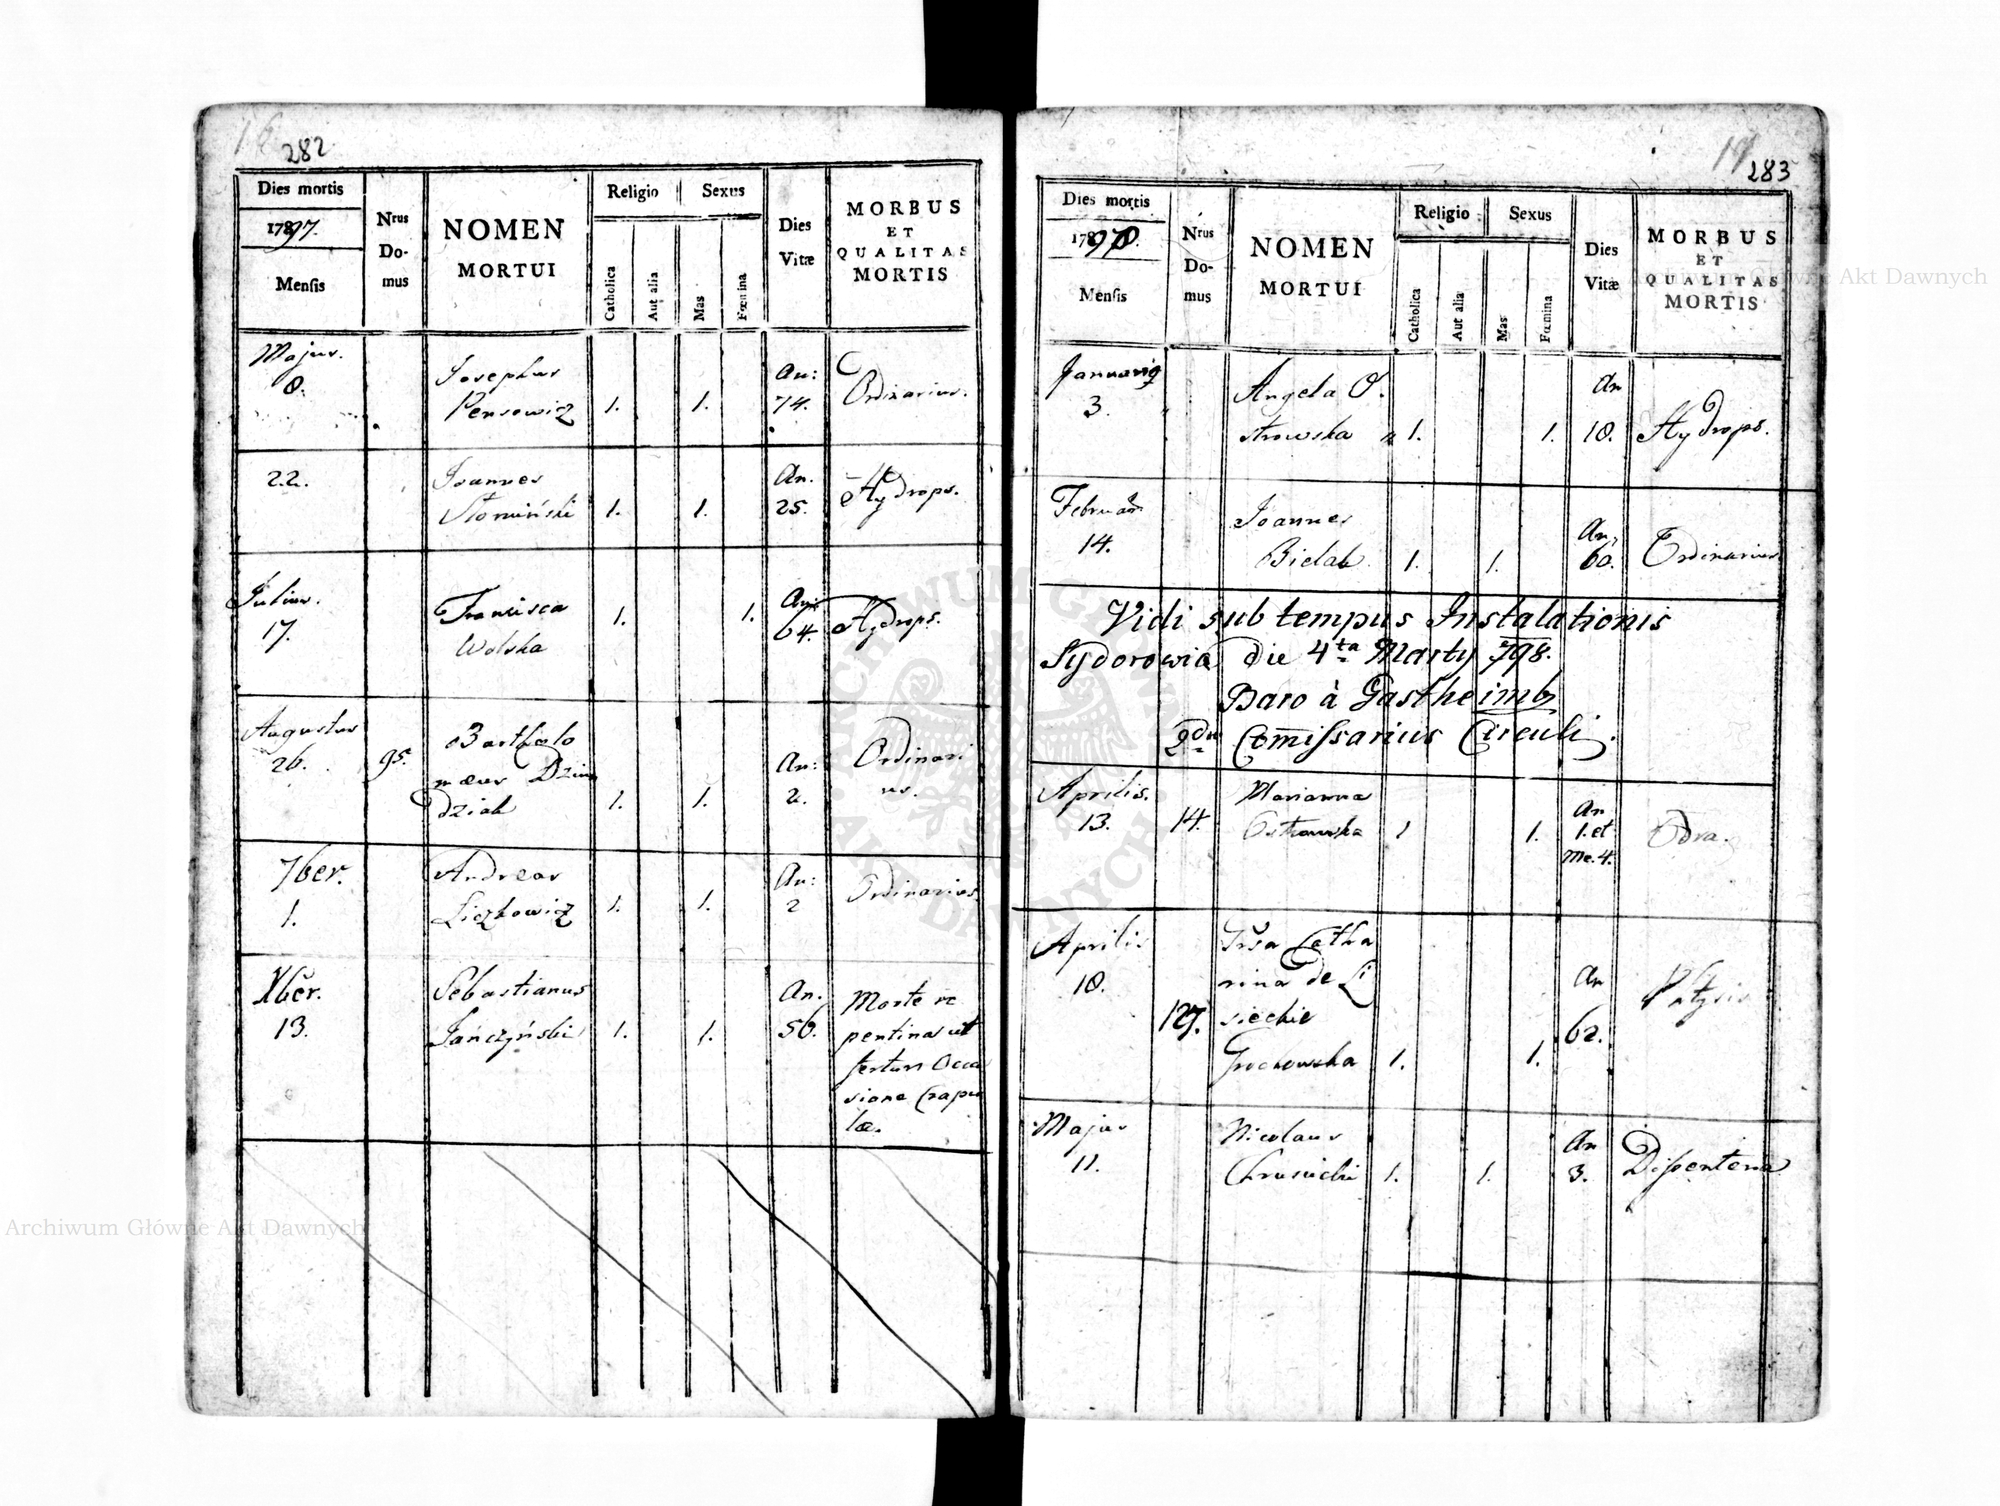 282
Dies mortis
1797.
Mensis
Nrus
Do-
mus
NOMEN
MORTUI
Religio
Sexus
Catholica
Aut alia
Mas
Fœmina
Dies
Vitæ
MORBUS
ET
QUALITAS
MORTIS
Majus.
8.
Josephus
Persowicz
1.
1.
An:
74.
Ordinarius.
22.
Joannes
Słomiński
1.
1.
An.
25.
Hydrops.
Julius.
17.
Francisca
Wolska
1.
1.
An:
64.
Hydrops.
Augustus
26.
95.
Bartholo
mæus Dziu
dziak
1.
1.
An:
2.
Ordinari
us.
7ber.
1.
Andreas
Liczkowicz
1.
1.
An:
2
Ordinarius.
Xber.
13.
Sebastianus
Jańczyński
1.
1.
An.
56.
Morte re
pentina ut
fertur Occa
sione Crapu
læ.
283
Dies mortis
1798.
Mensis
Nrus
Do-
mus
NOMEN
MORTUI
Religio
Sexus
Catholica
Aut alia
Mas
Fœmina
Dies
Vitæ
MORBUS
ET
QUALITAS
MORTIS
Januarij
3.
Angela O.
strowska
1.
1.
An
18.
Hydrops.
Februar
14.
Joannes
Bielak
1.
1.
An.
60.
Ordinarius
Vidi sub tempus Instalationis
Sydorowia die 4ta Marty 798.
Baro à Gastheimb
2dus Com̄issarius Circuli.
Aprilis.
13.
14.
Marianna
Ostrowska
1
1.
An
1. et
Me. 4.
Odra.
Aprilis
18.
127.
Catha
rina de Li
siechie
Grochowska
1.
1.
An
62.
Phtysis
Majus
11.
Nicolaus
Chrusicki
1.
1.
An
3.
Dissenteria
Archiwum Główne Akt Dawnych
Archiwum Główne Akt Dawnych
ARCHIWUM GŁÓWNE AKT DAWNYCH